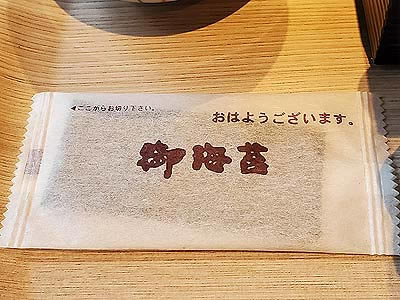 ◀ここからお切り下さい。
おはようございます。
御海苔